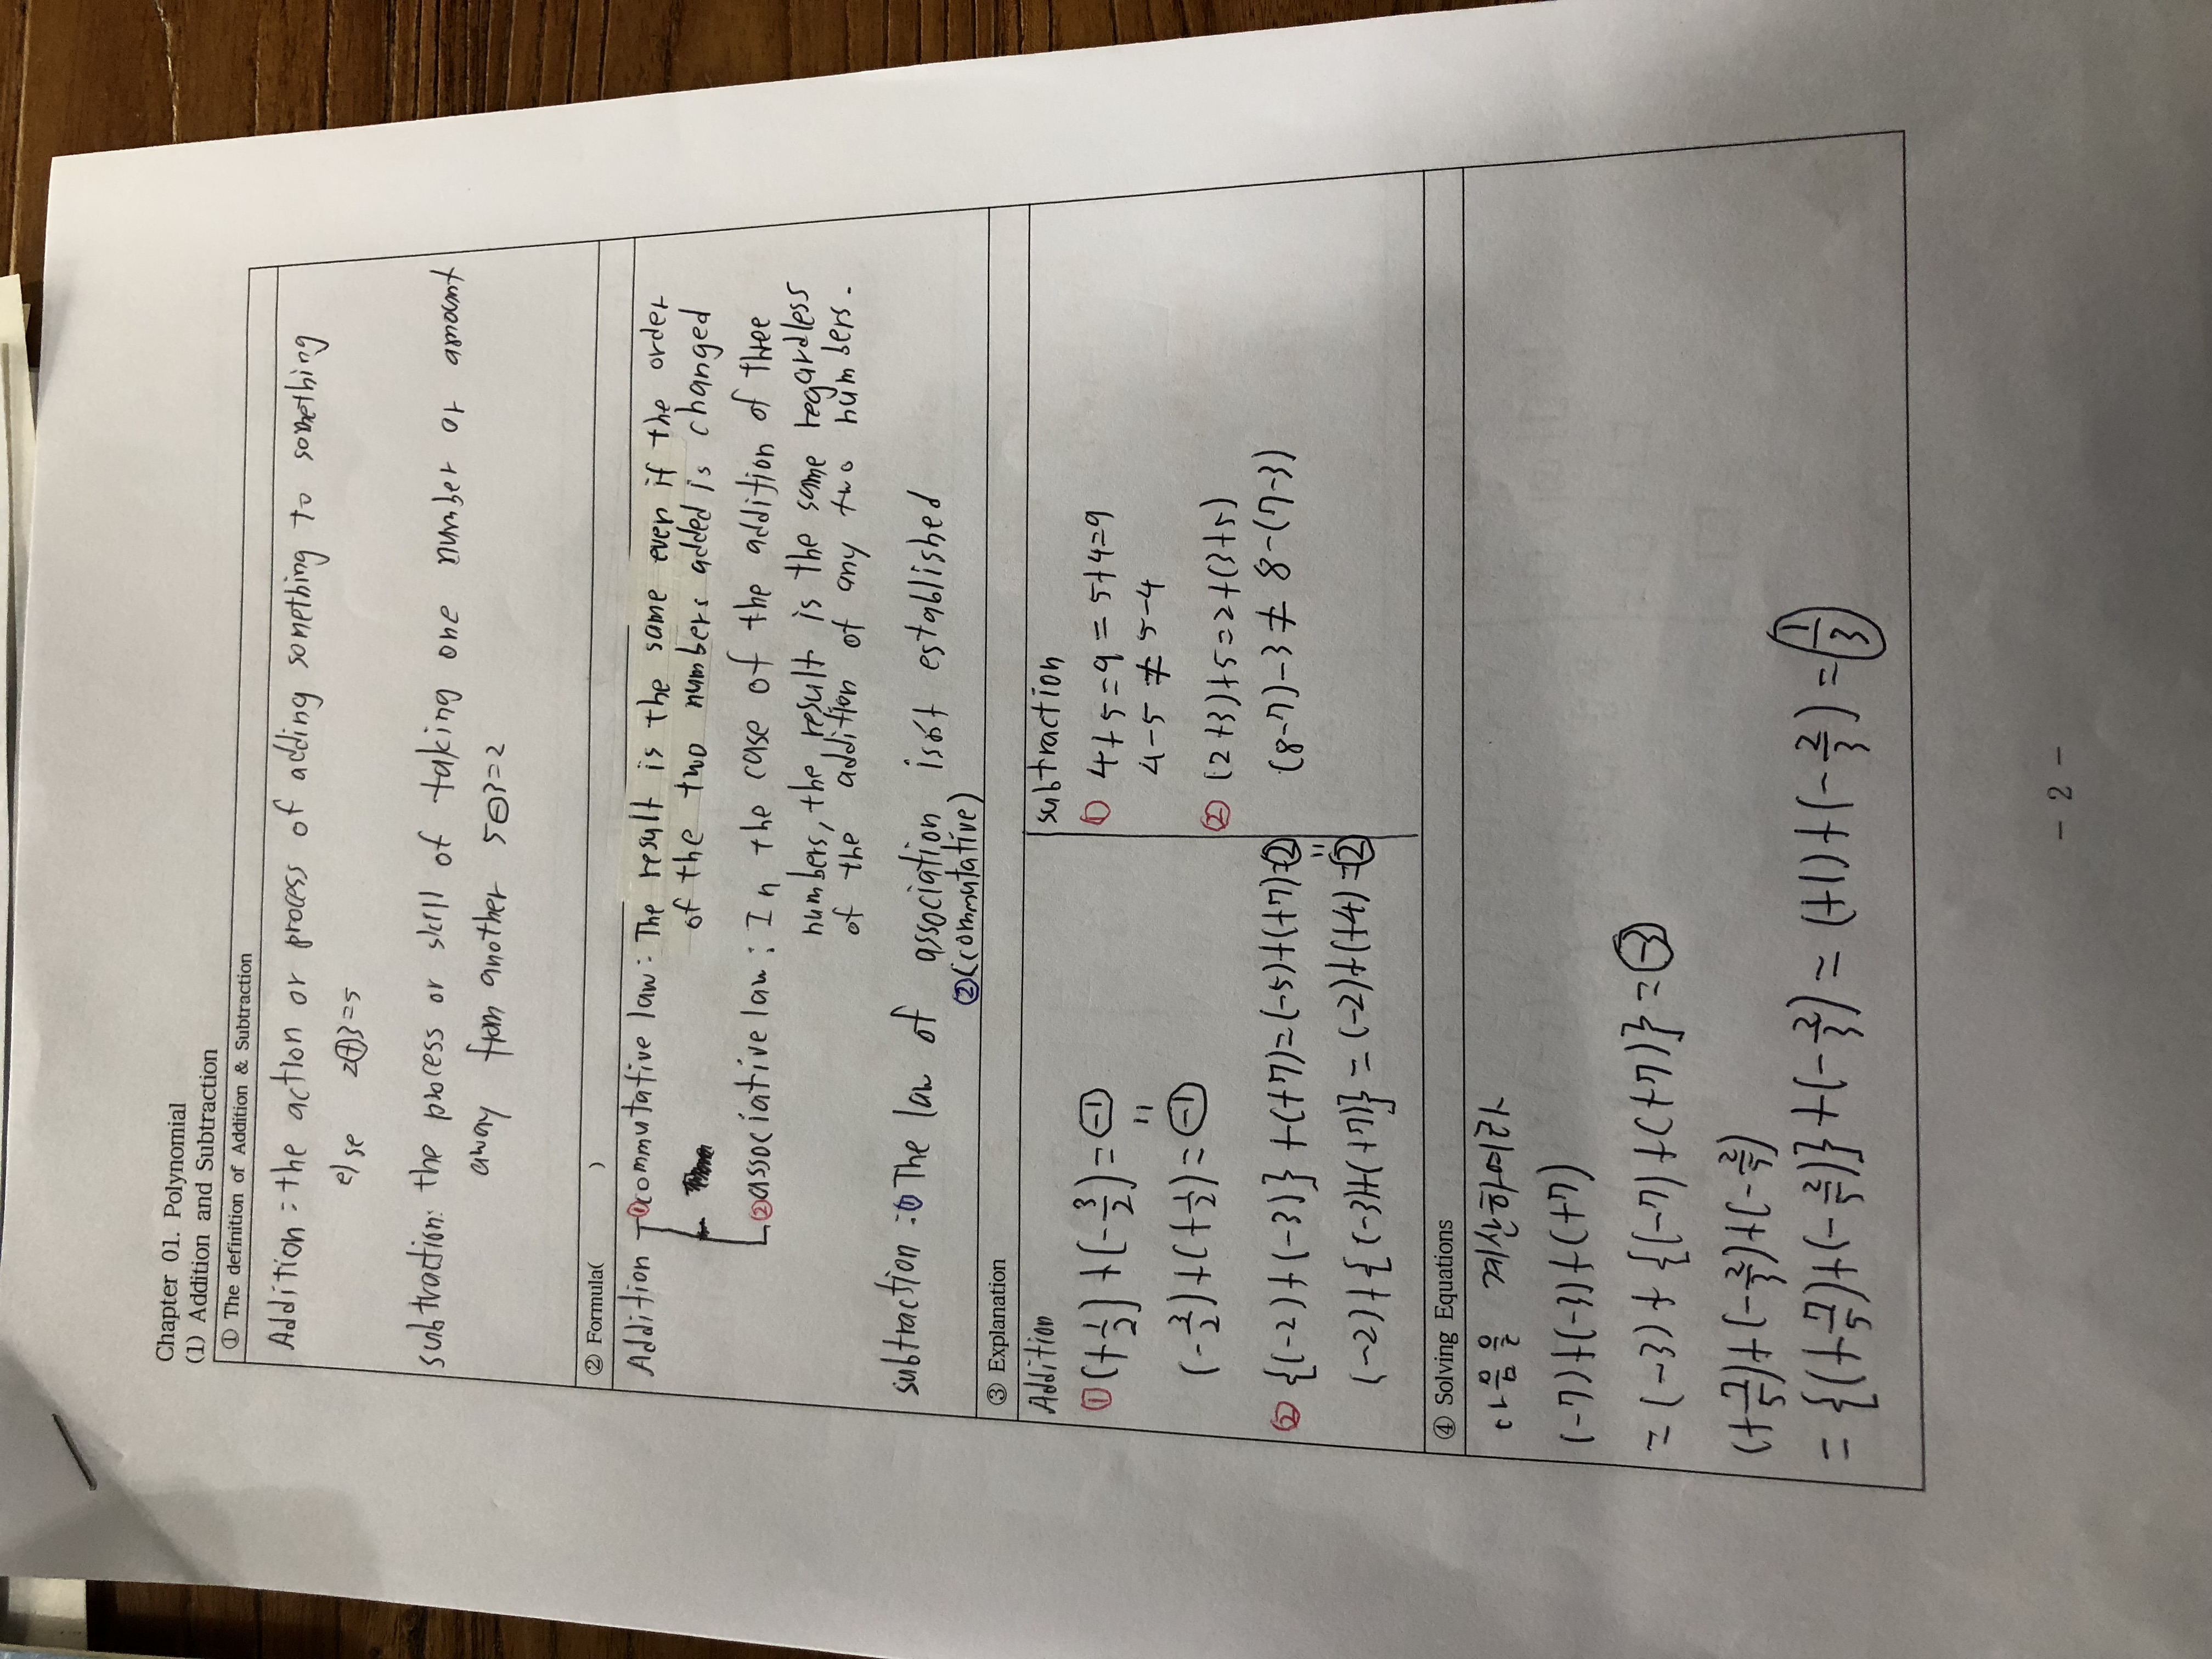 Chapter 01. Polynomial
(1) Addition and Subtraction
① The definition of Addition & Subtraction
Addition : the action or process of adding something to something
else 2⊕3=5
subtraction: the process or skill of taking one number or amount
away from another 5⊖3=2
② Formula( )
Addition ①commutative law : The result is the same even if the order
of the two numbers added is changed
②associative law : In the case of the addition of three
numbers, the result is the same regardless
of the addition of any two numbers.
subtraction :① The law of association isn't established
②(commutative)
③ Explanation
Addition
① (+1/2)+(-3/2)=-1
=
(-3/2)+(+1/2)=-1
② {(-2)+(-3)}+(+7)=(-5)+(+7)=2
=
(-2)+{(-3)+(+7)}=(-2)+(+4)=2
subtraction
① 4+5=9=5+4=9
4-5≠5-4
② (2+3)+5=2+(3+5)
(8-7)-3≠8-(7-3)
④ Solving Equations
다음을 계산하여라
(-7)+(-3)+(+7)
=(-3)+{(-7)+(+7)}=-3
(+7/5)+(-2/3)+(-2/5)
={(+7/5)+(-2/5)}+(-2/3)=(+1)+(-2/3)=1/3
- 2 -